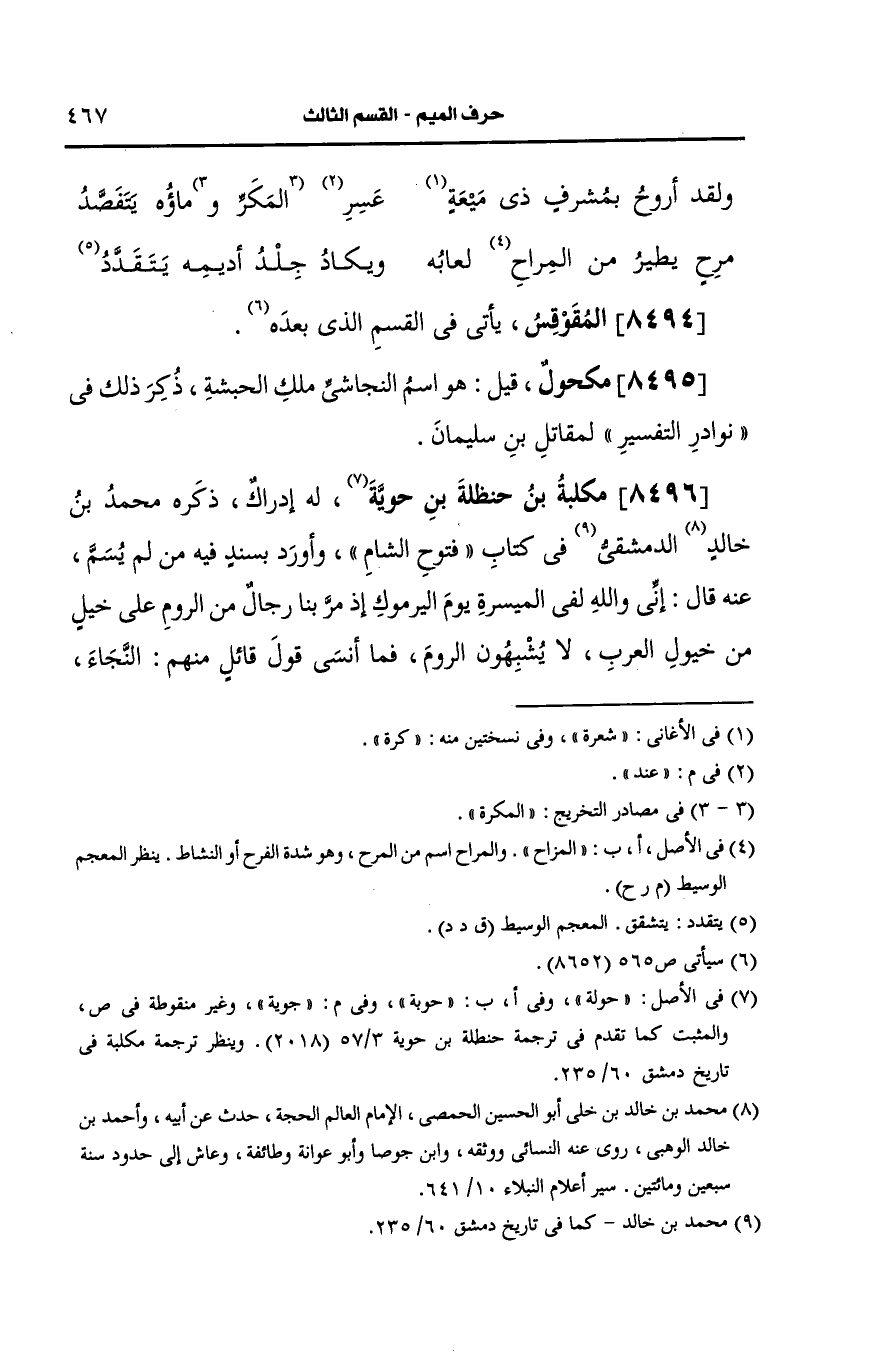 حرف الميم - القسم الثالث ٤٦٧
ولقد أروحُ بمُشرفٍ ذى مَيْعَةٍ(١) عَسِرِ(٢) (٣المَكَرِّ و٣)ماؤُه يَتَفَصَّدُ
مرِحٍ يطيرُ من المِراحِ(٤) لعابُه ويكادُ جِلْدُ أديمِه يَتَقَدَّدُ(٥)
[٨٤٩٤] المُقَوْقِسُ ، يأتى فى القسمِ الذى بعدَه(٦) .
[٨٤٩٥] مكحولٌ ، قيل : هو اسمُ النجاشىِّ ملكِ الحبشةِ ، ذُكِرَ ذلك فى
« نوادرِ التفسيرِ » لمقاتلِ بنِ سليمانَ .
[٨٤٩٦] مكلبةُ بنُ حنظلةَ بنِ حويَّةَ(٧) ، له إدراكٌ ، ذكَره محمدُ بنُ
خالدٍ(٨) الدمشقىُّ(٩) فى كتابِ « فتوحِ الشامِ » ، وأورَد بسندٍ فيه من لم يُسَمَّ ،
عنه قال : إنِّى واللهِ لفى الميسرةِ يومَ اليرموكِ إذ مرَّ بنا رجالٌ من الرومِ على خيلٍ
من خيولِ العربِ ، لا يُشْبِهُون الرومَ ، فما أنسَى قولَ قائلٍ منهم : النَّجَاءَ ،
(١) فى الأغانى : « شعرة » ، وفى نسختين منه : « كرة » .
(٢) فى م : « عند » .
(٣ - ٣) فى مصادر التخريج : « المكرة » .
(٤) فى الأصل ، أ ، ب : « المزاح » . والمراح اسم من المرح ، وهو شدة الفرح أو النشاط . ينظر المعجم
الوسيط (م ر ح) .
(٥) يتقدد : يتشقق . المعجم الوسيط (ق د د) .
(٦) سيأتى ص٥٦٥ (٨٦٥٢) .
(٧) فى الأصل : « حولة » ، وفى أ ، ب : « حوبة » ، وفى م : « جوية » ، وغير منقوطة فى ص ،
والمثبت كما تقدم فى ترجمة حنظلة بن حوية ٥٧/٣ (٢٠١٨) . وينظر ترجمة مكلبة فى
تاريخ دمشق ٢٣٥/٦٠.
(٨) محمد بن خالد بن خلى أبو الحسين الحمصى ، الإمام العالم الحجة ، حدث عن أبيه ، وأحمد بن
خالد الوهبى ، روى عنه النسائى ووثقه ، وابن جوصا وأبو عوانة وطائفة ، وعاش إلى حدود سنة
سبعين ومائتين . سير أعلام النبلاء ٦٤١/١٠.
(٩) محمد بن خالد - كما فى تاريخ دمشق ٢٣٥/٦٠.